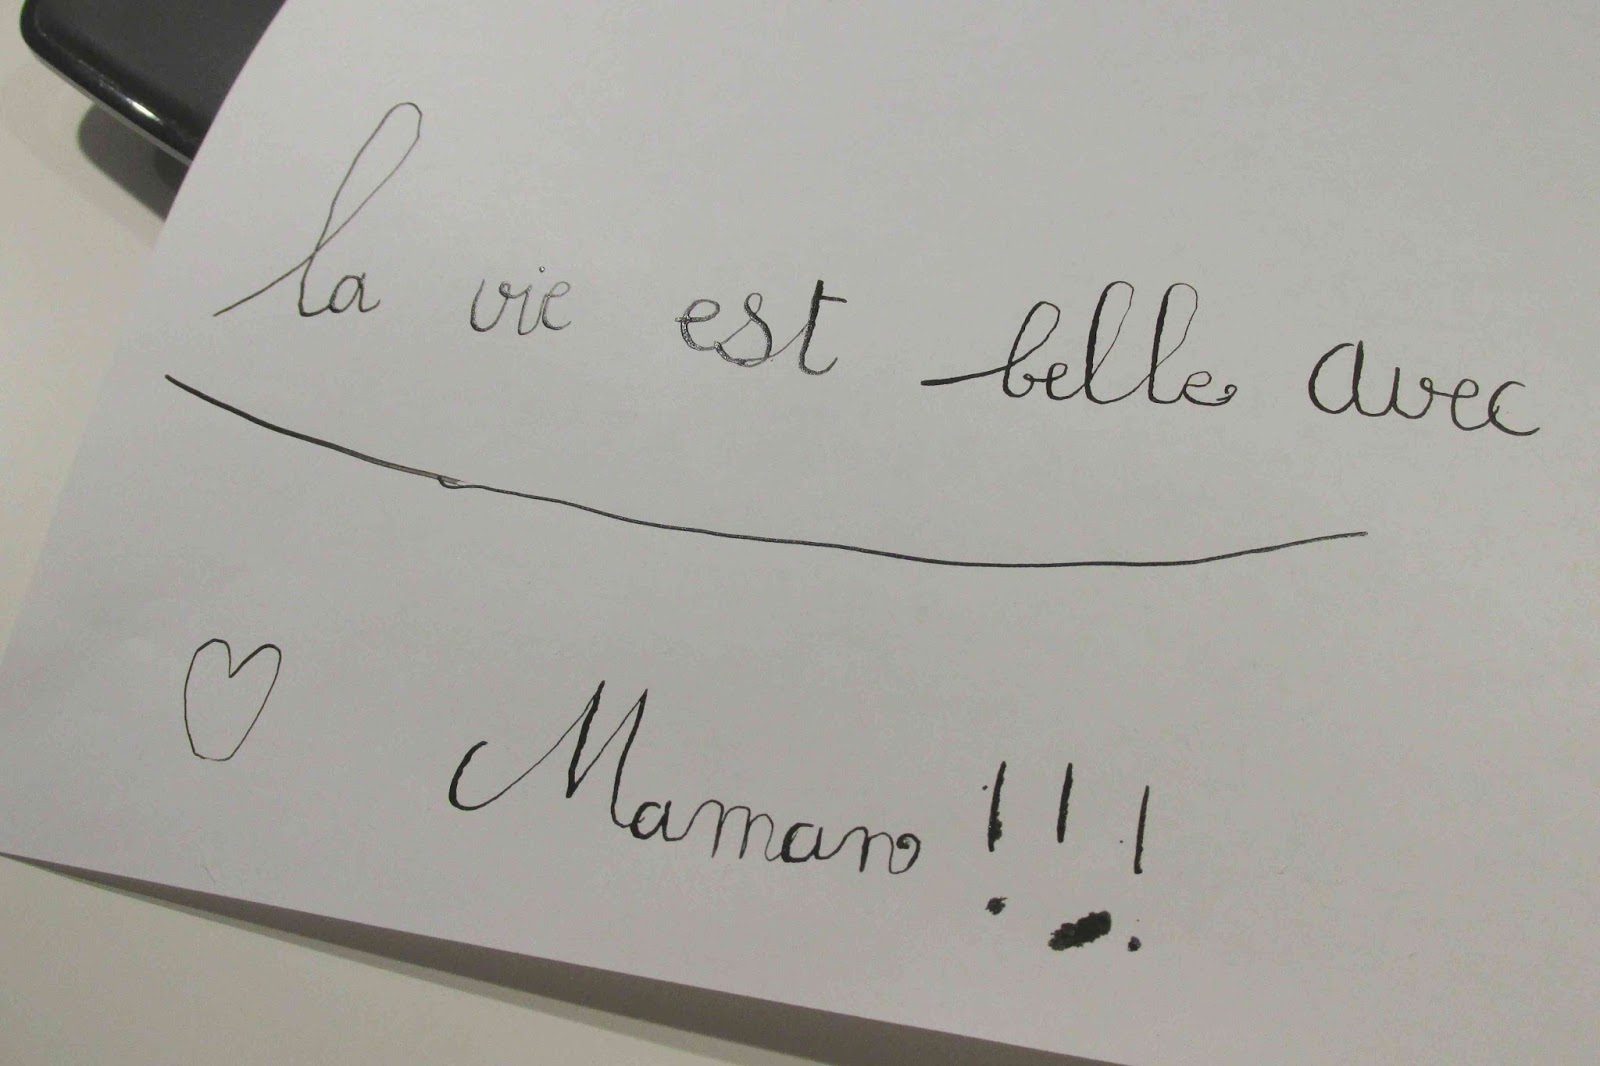 la vie est belle avec
Maman !!!